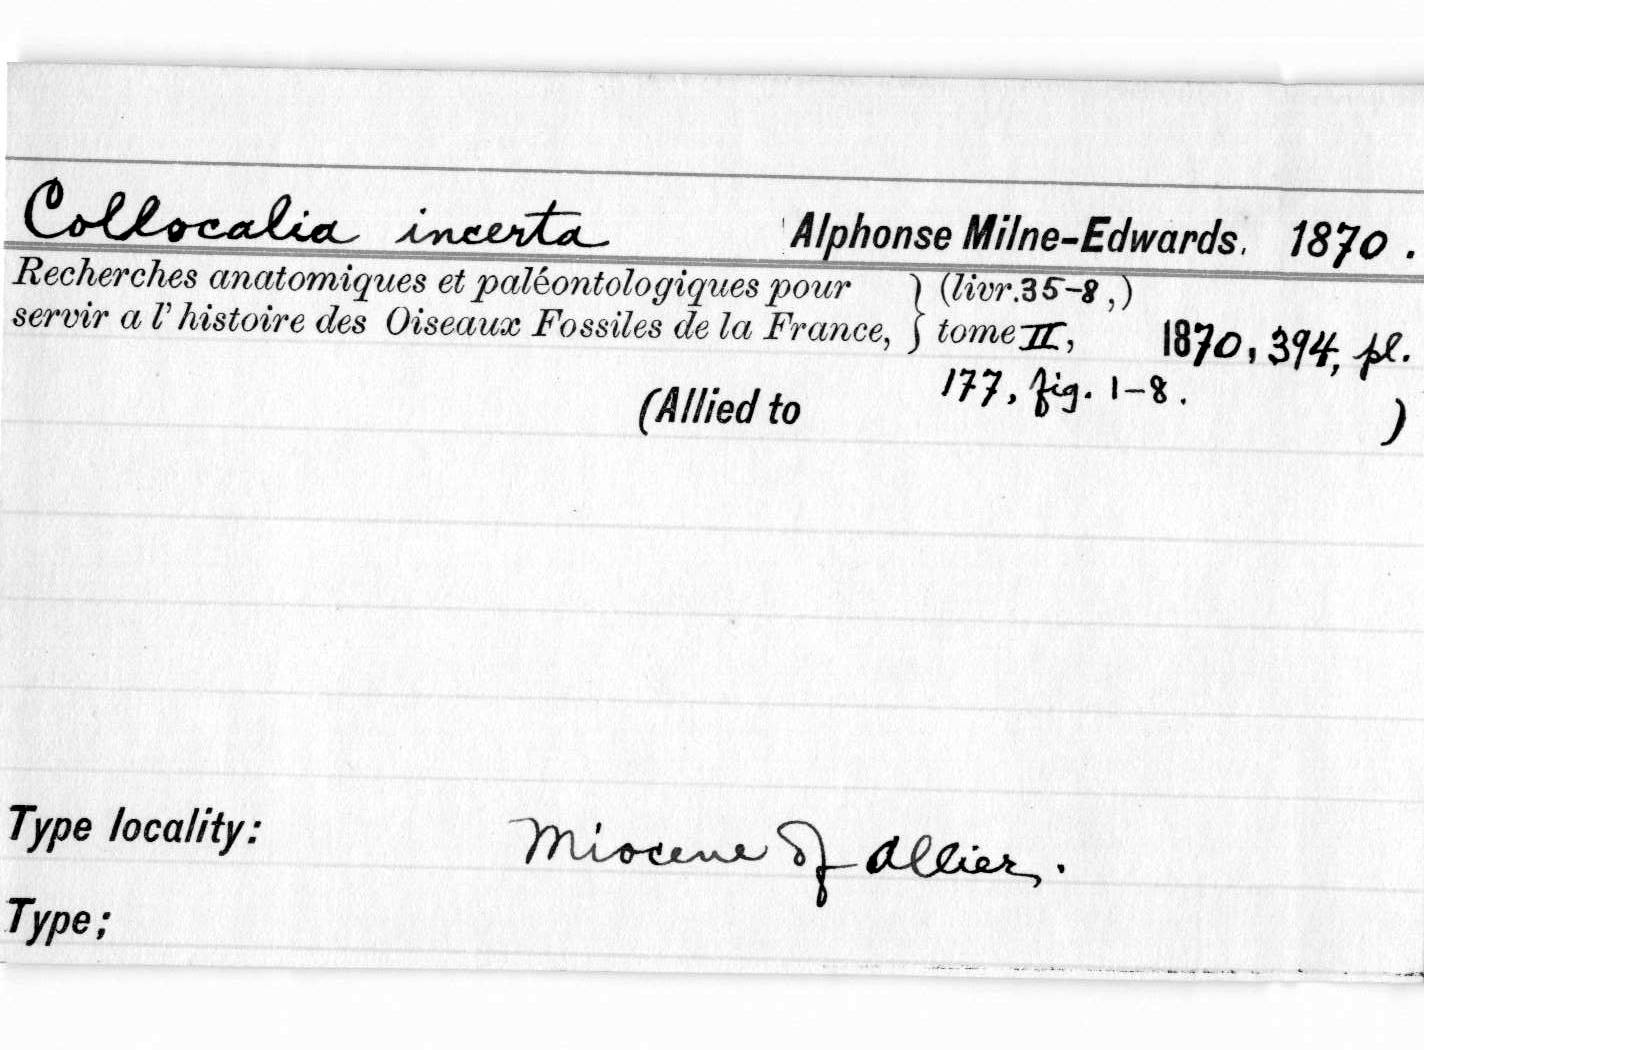 Collocalia incerta Alphonse Milne-Edwards. 1870.
Recherches anatomiques et paléontologiques pour } (livr.35-8,)
servir a l'histoire des Oiseaux Fossiles de la France, } tome II, 1870, 394, pl.
177, fig. 1-8.
(Allied to )
Type locality: Miocene of Allier.
Type;